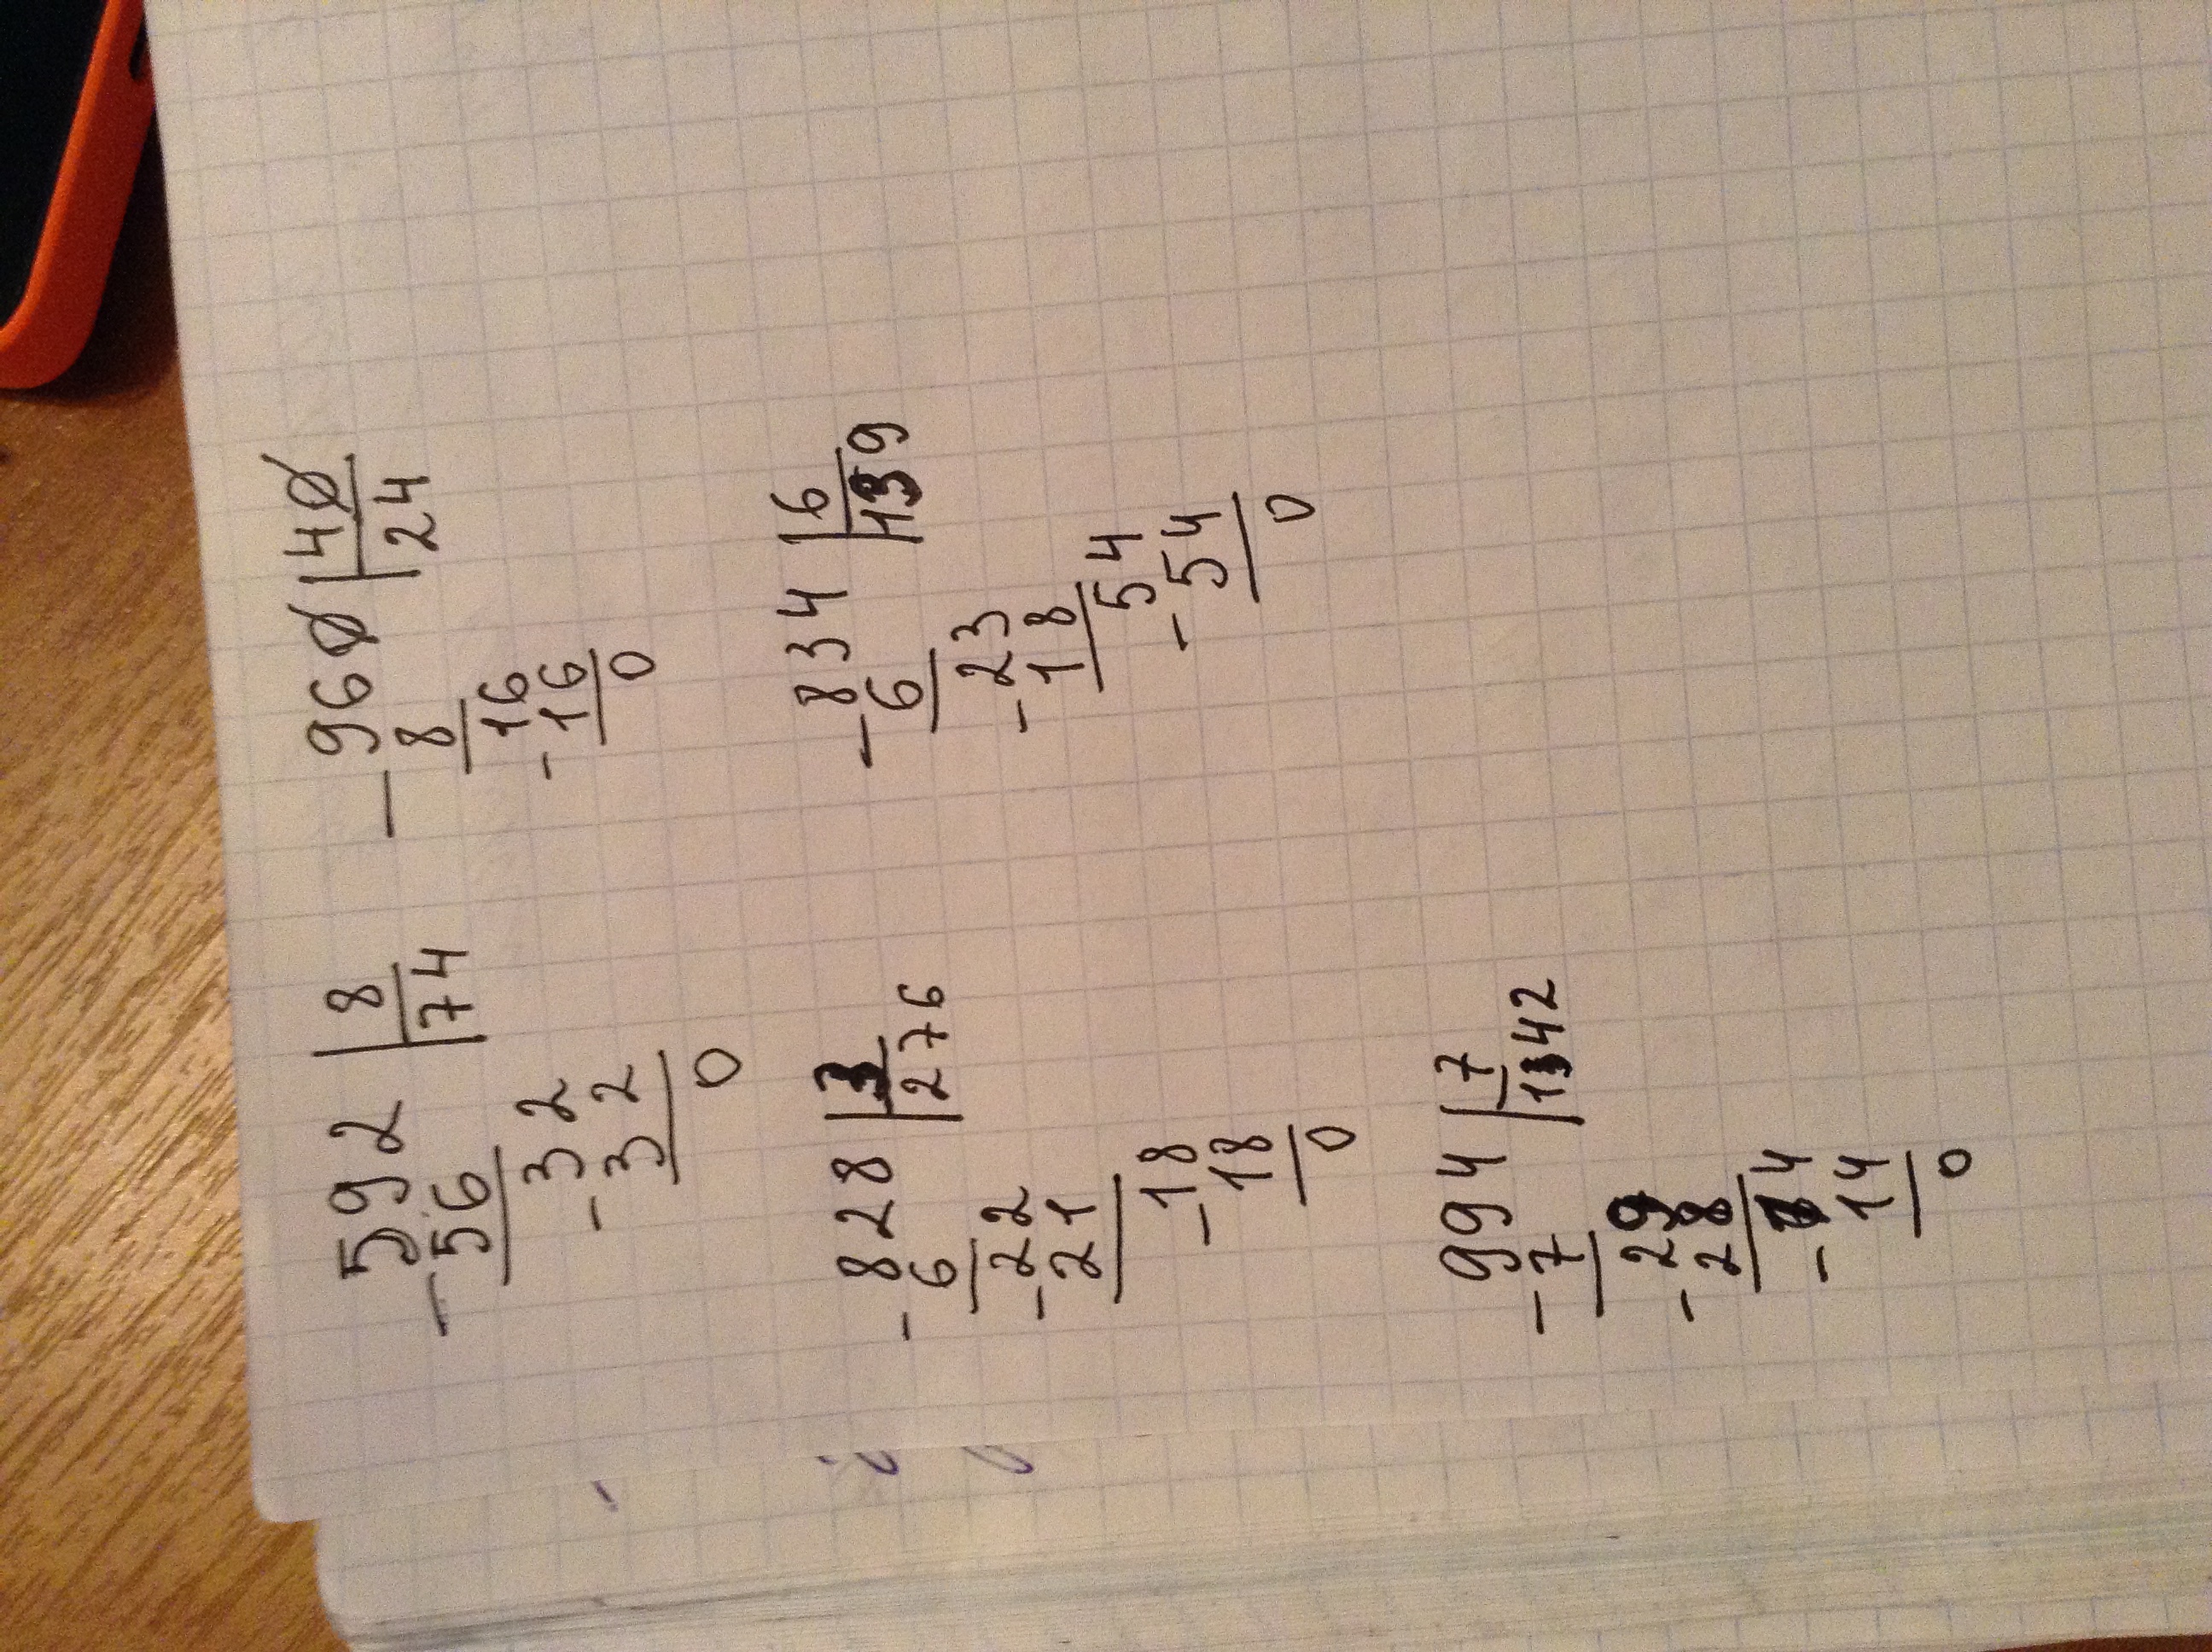 592 | 8
-56 | 74
-32
32
0
960 | 40
-8 | 24
-16
16
0
828 | 3
-6 | 276
-22
21
-18
18
0
834 | 6
-6 | 139
-23
18
-54
54
0
994 | 7
-7 | 142
-29
28
-14
14
0